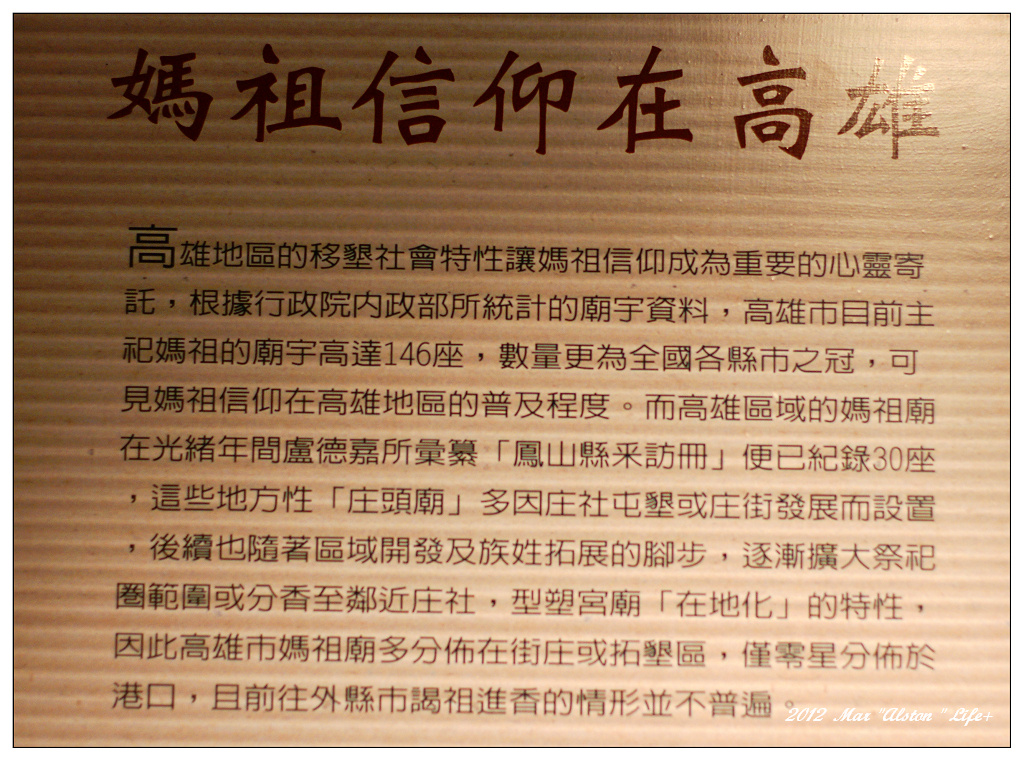 媽祖信仰在高雄
高雄地區的移墾社會特性讓媽祖信仰成為重要的心靈寄
託，根據行政院內政部所統計的廟宇資料，高雄市目前主
祀媽祖的廟宇高達146座，數量更為全國各縣市之冠，可
見媽祖信仰在高雄地區的普及程度。而高雄區域的媽祖廟
在光緒年間盧德嘉所彙纂「鳳山縣采訪冊」便已紀錄30座
，這些地方性「庄頭廟」多因庄社屯墾或庄街發展而設置
，後續也隨著區域開發及族姓拓展的腳步，逐漸擴大祭祀
圈範圍或分香至鄰近庄社，型塑宮廟「在地化」的特性，
因此高雄市媽祖廟多分佈在街庄或拓墾區，僅零星分佈於
港口，且前往外縣市謁祖進香的情形並不普遍。
2012 Mar "Alston" Life+